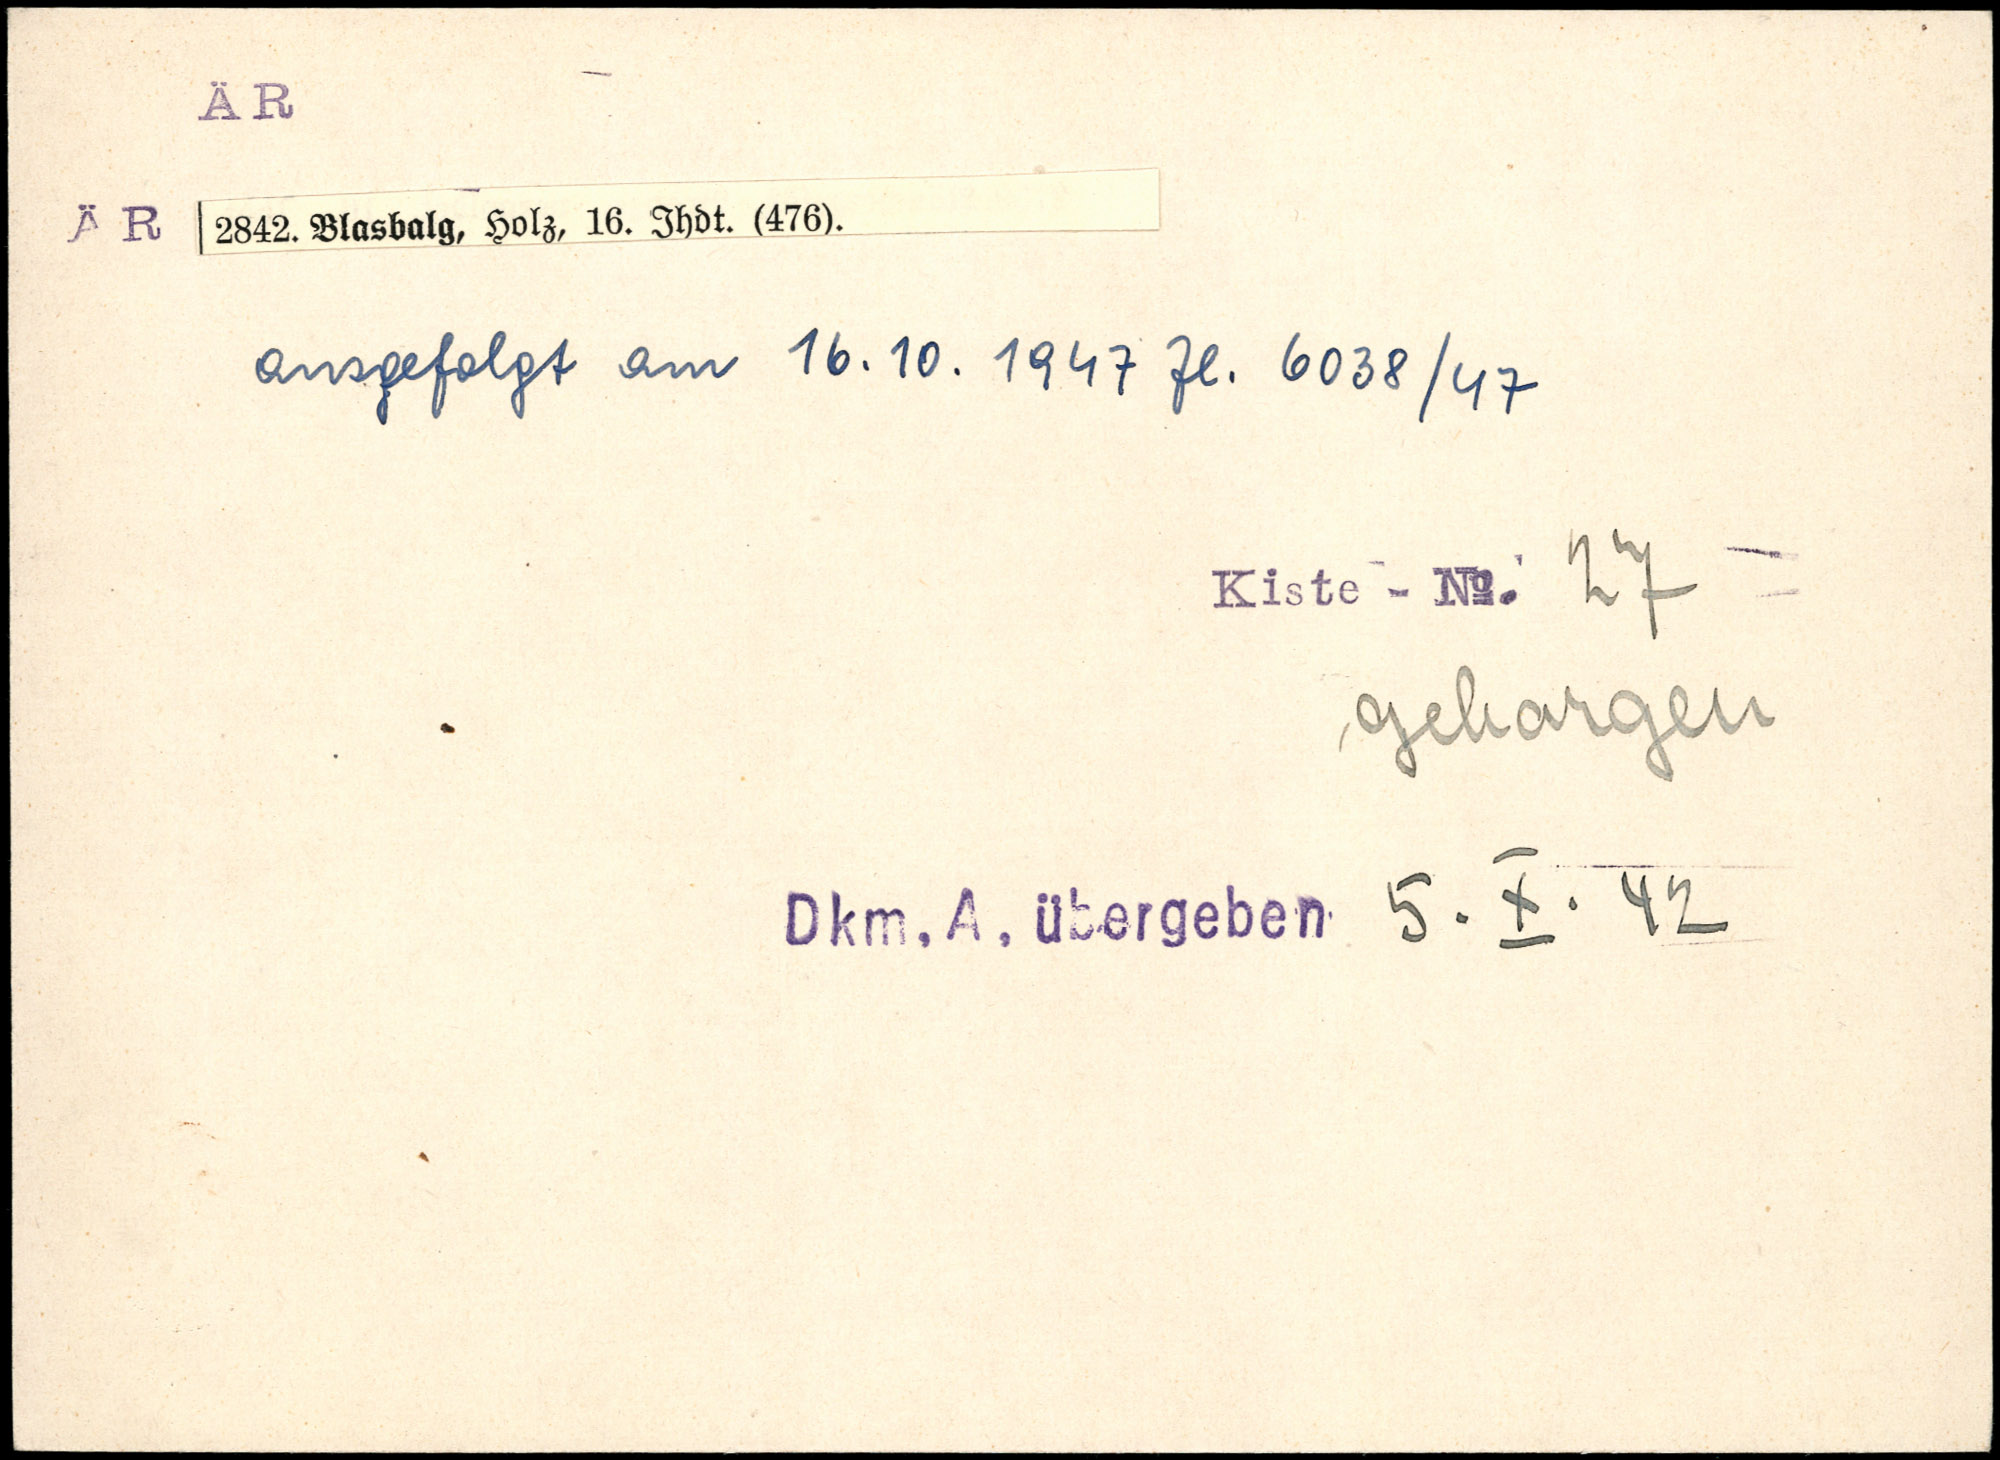 ÄR
ÄR 2842. Blasbalg, Holz, 16. Jhdt. (476).
ausgefolgt am 16.10.1947 Zl. 6038/47
Kiste - №. 27
geborgen
Dkm. A. übergeben 5. X. 42